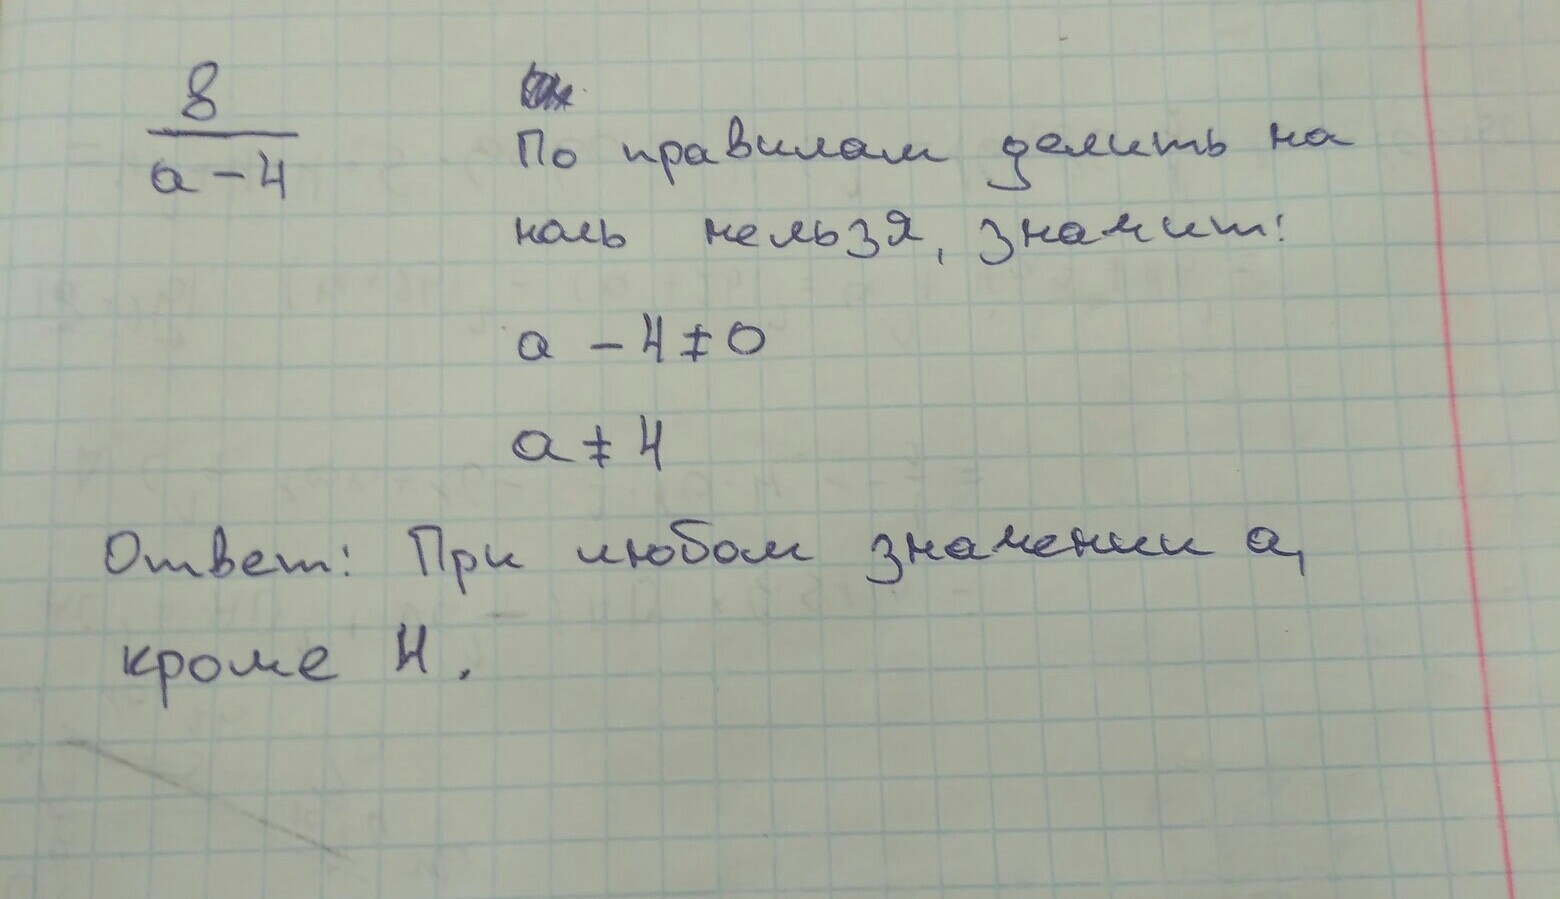 8
a - 4
По правилам делить на
ноль нельзя, значит:
a - 4 ≠ 0
a ≠ 4
Ответ: При любом значении a,
кроме 4.